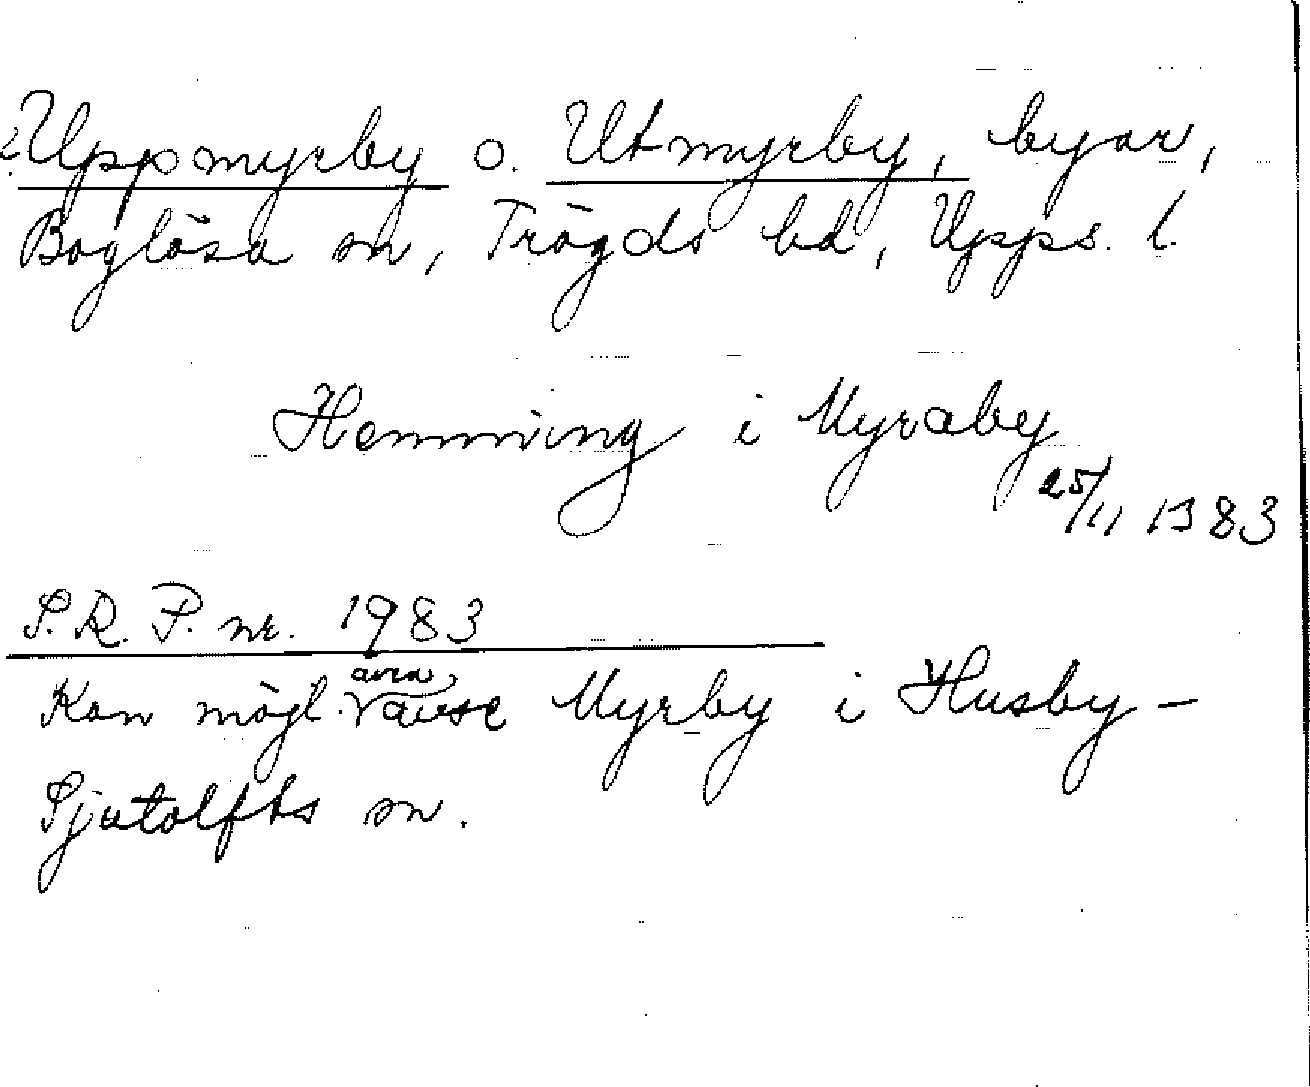 ? Uppmyrby o. Utmyrby, byar,
Boglösa sn, Trögds hd, Upps. l.
Hemming i Myraby
25/11 1383
S.R.P. nr. 1983
Kan mögl. även avse Myrby i Husby-
Sjutolfts sn.